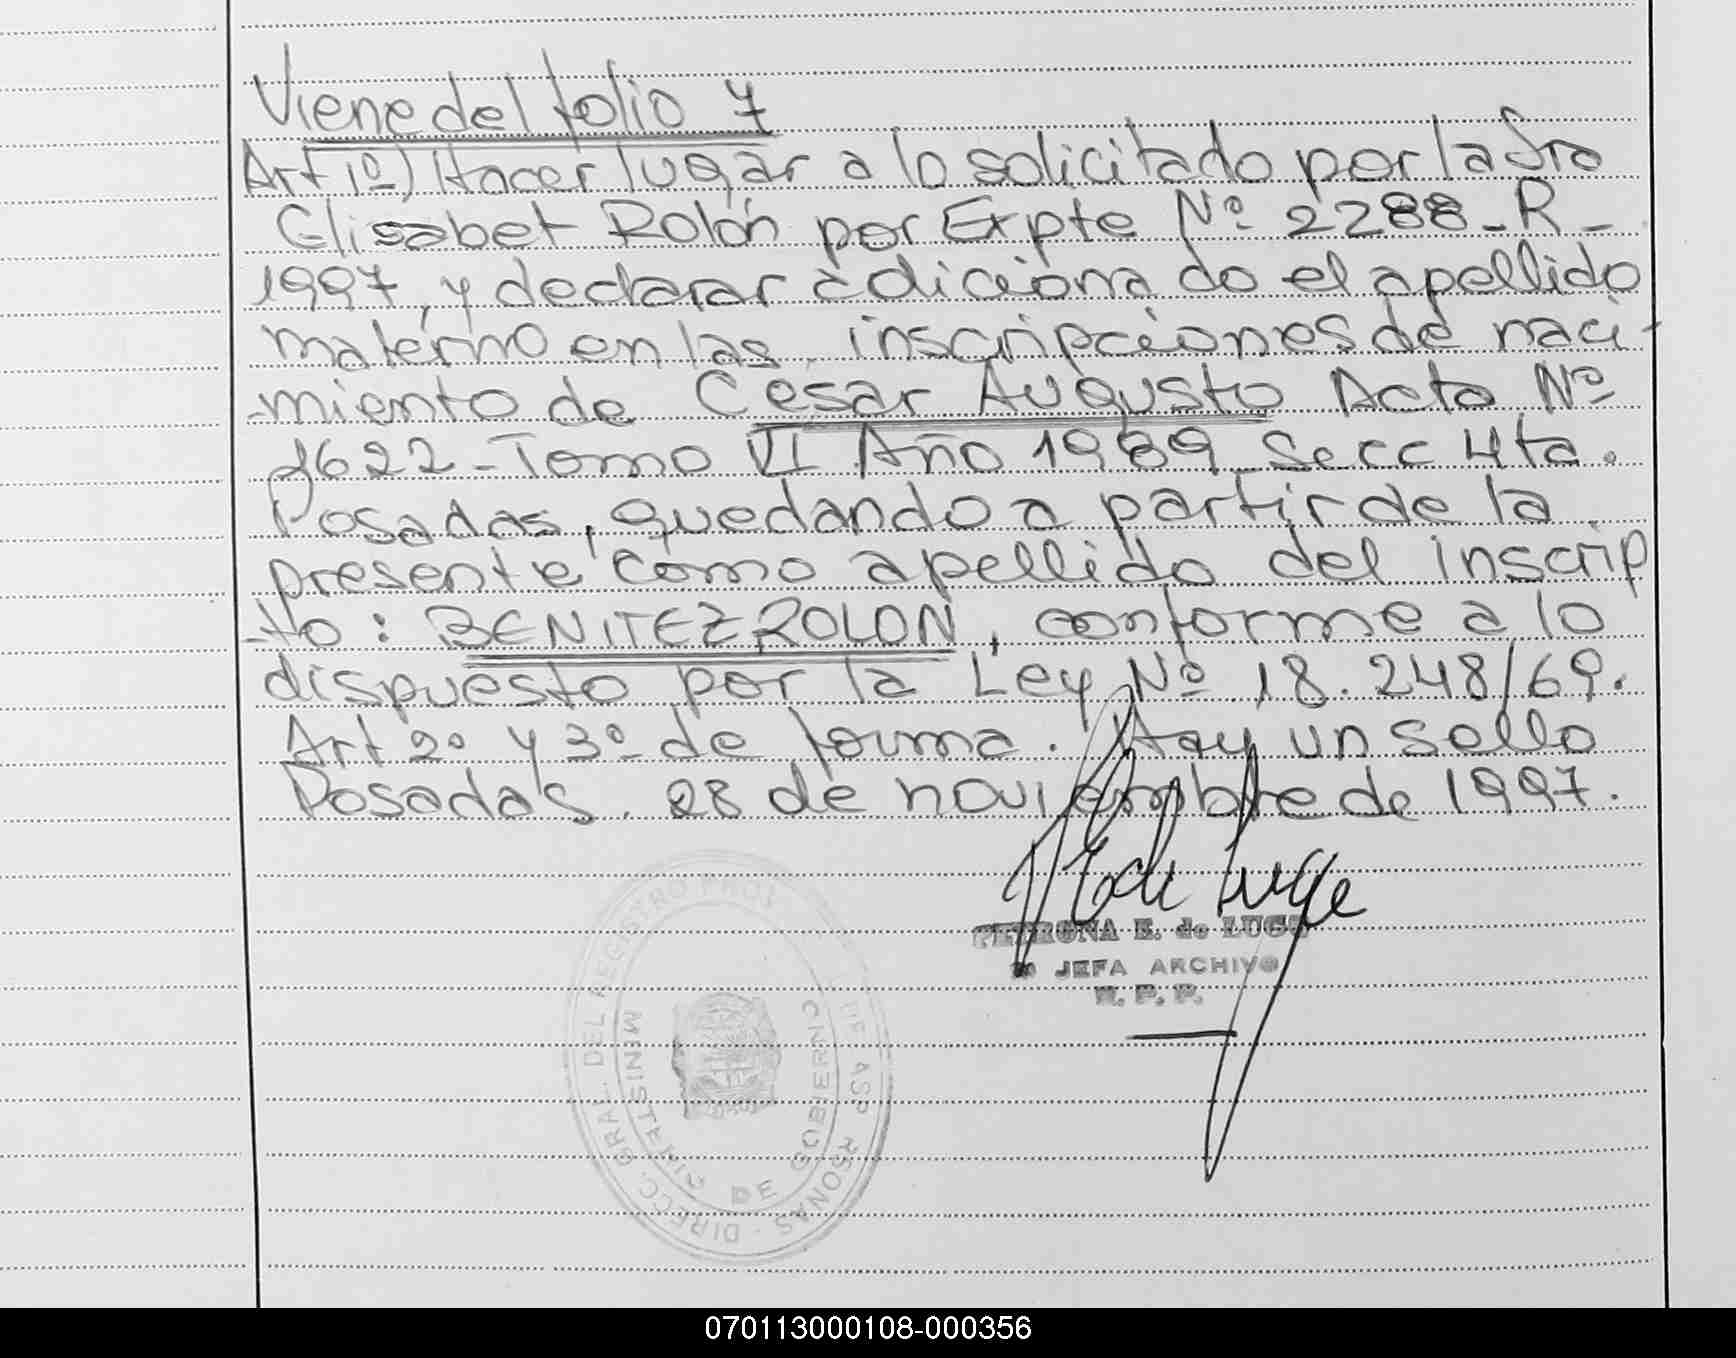 Viene del folio 7
Art 1º) Hacer lugar a lo solicitado por la Sra
Elisabet Rolón por Expte Nº 2288-R-
1997, y declarar adicionado el apellido
materno en las inscripciones de naci-
-miento de Cesar Augusto Acta Nº
2622-Tomo VI Año 1989 Secc 4ta.
Posadas, quedando a partir de la
presente como apellido del inscrip
-to: BENITEZ ROLON, conforme a lo
dispuesto por la Ley Nº 18.248/69.
Art 2º y 3º de forma. Hay un sello
Posadas. 28 de noviembre de 1997.
PETRONA E. de LUGO
JEFA ARCHIVO
R. P. P.
DIRECC. GRAL. DEL REGISTRO PROV. DE
MINISTERIO DE GOBIERNO
070113000108-000356